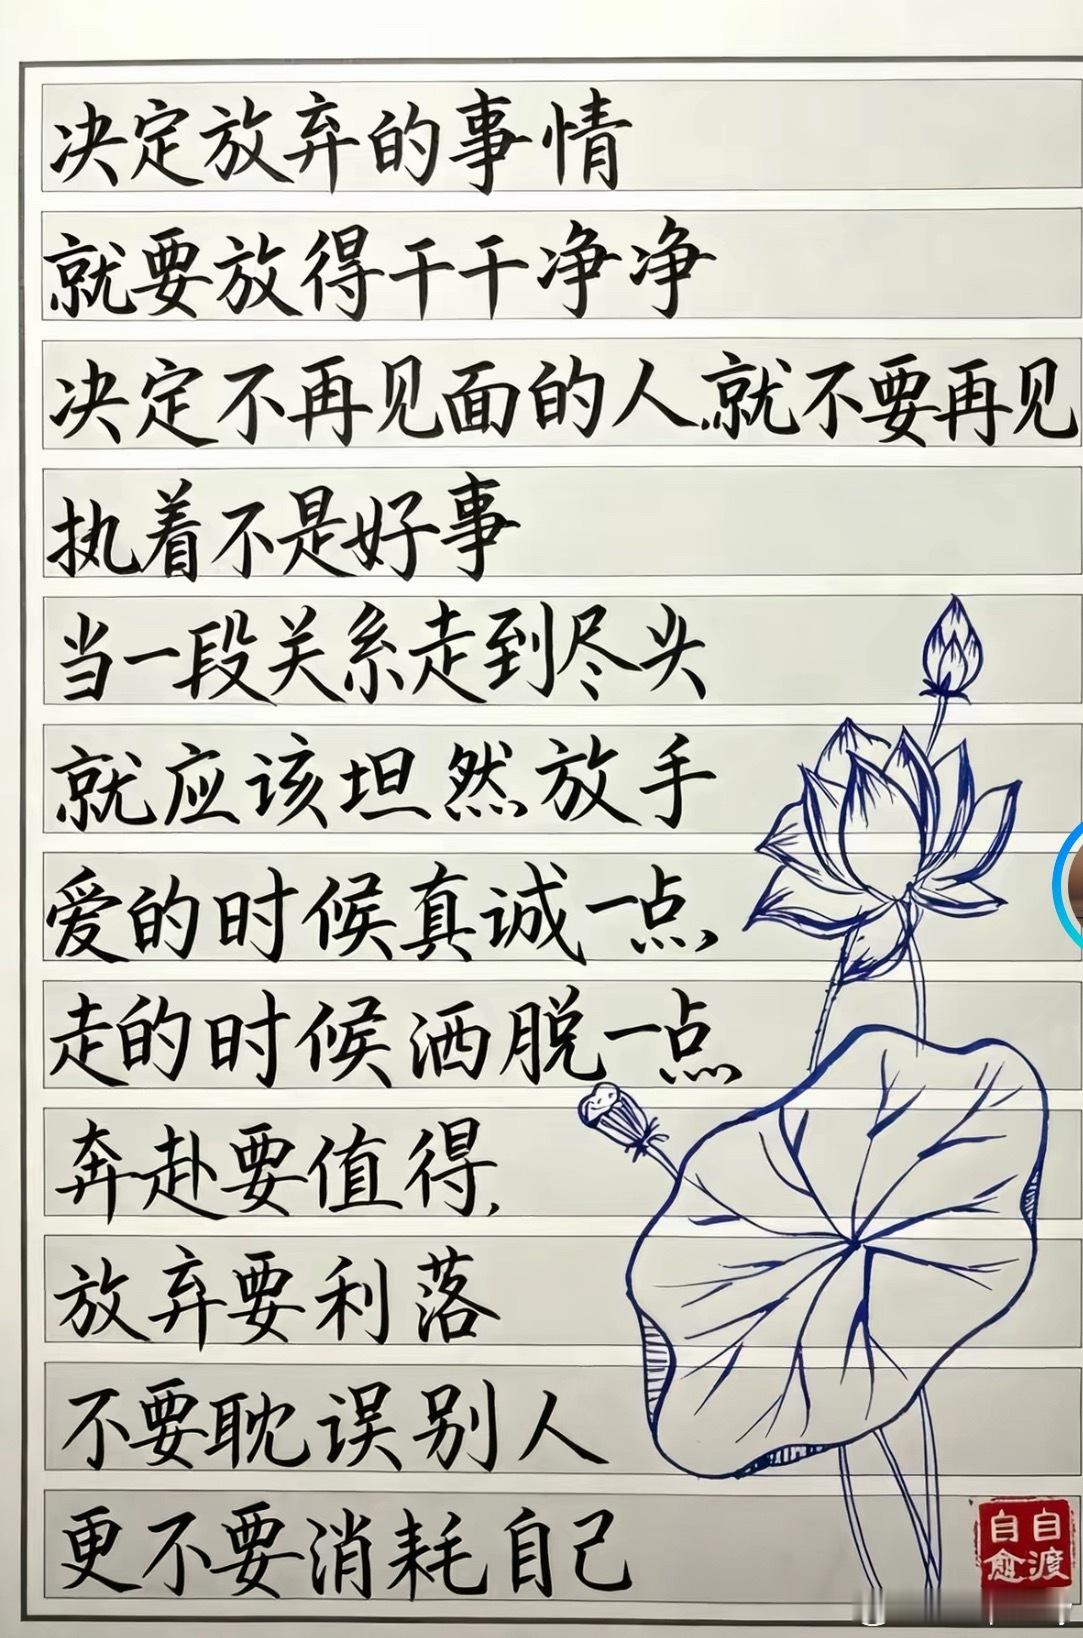 决定放弃的事情
就要放得干干净净
决定不再见面的人.就不要再见
执着不是好事
当一段关系走到尽头
就应该坦然放手
爱的时候真诚一点,
走的时候洒脱一点
奔赴要值得,
放弃要利落
不要耽误别人
更不要消耗自己
自渡
自愈